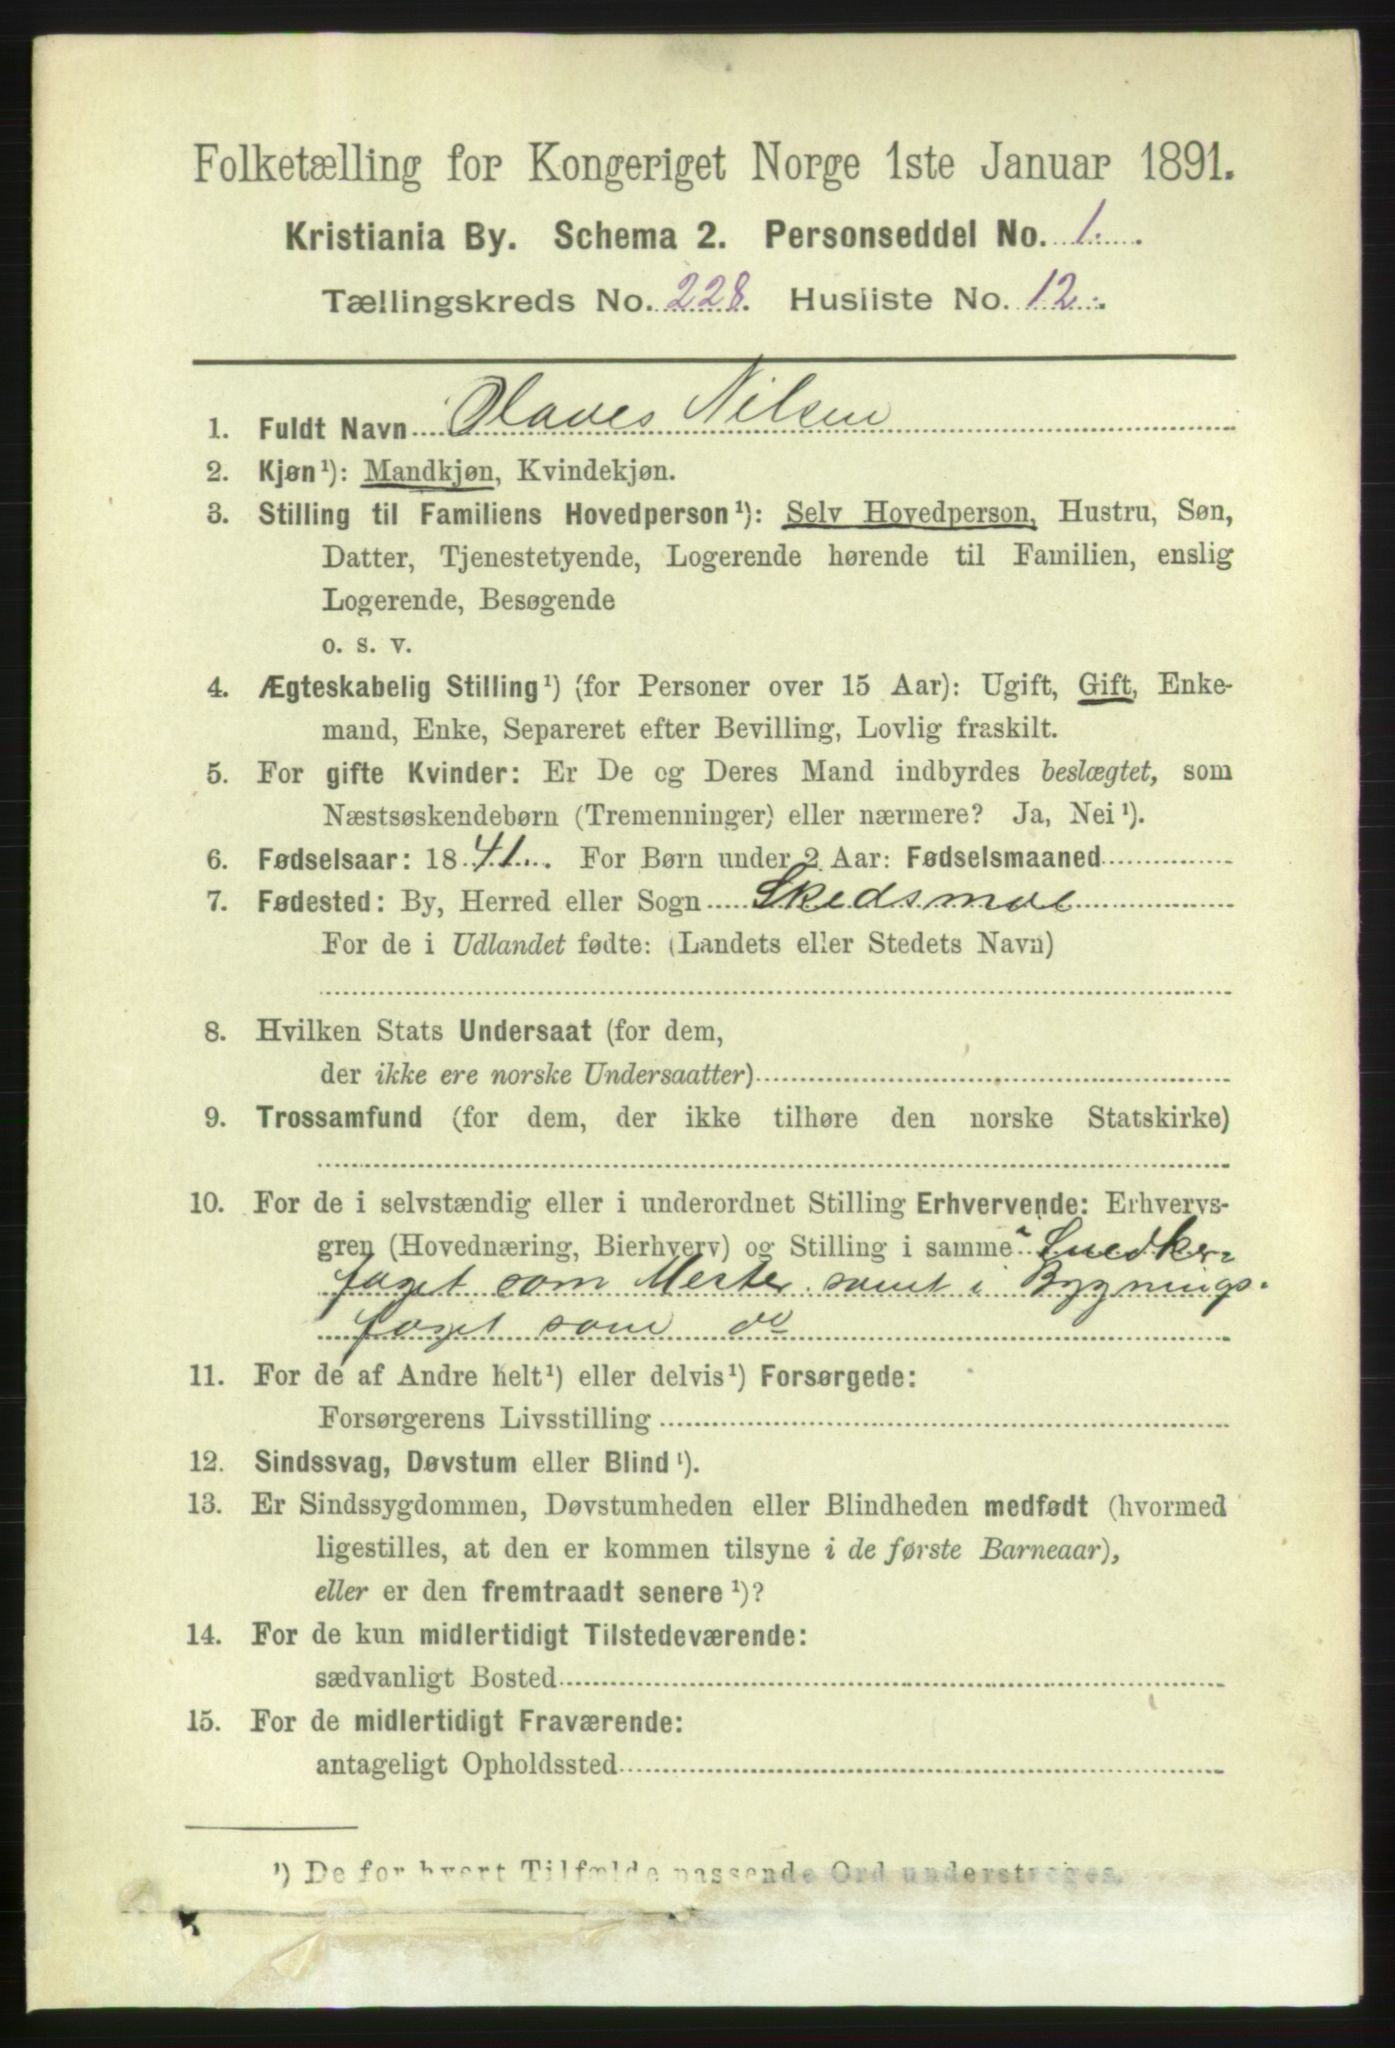 Folketælling for Kongeriget Norge 1ste Januar 1891.
Kristiania By. Schema 2. Personseddel No. 1.
Tællingskreds No. 228. Husliste No. 12.
1. Fuldt Navn Olaves Nilsen
2. Kjøn¹): Mandkjøn, Kvindekjøn.
3. Stilling til Familiens Hovedperson¹): Selv Hovedperson, Hustru, Søn,
Datter, Tjenestetyende, Logerende hørende til Familien, enslig
Logerende, Besøgende
o. s. v.
4. Ægteskabelig Stilling¹) (for Personer over 15 Aar): Ugift, Gift, Enke-
mand, Enke, Separeret efter Bevilling, Lovlig fraskilt.
5. For gifte Kvinder: Er De og Deres Mand indbyrdes beslægtet, som
Næstsøskendebørn (Tremenninger) eller nærmere? Ja, Nei¹).
6. Fødselsaar: 1841. For Børn under 2 Aar: Fødselsmaaned
7. Fødested: By, Herred eller Sogn Skedsmoe
For de i Udlandet fødte: (Landets eller Stedets Navn)
8. Hvilken Stats Undersaat (for dem,
der ikke ere norske Undersaatter)
9. Trossamfund (for dem, der ikke tilhøre den norske Statskirke)
10. For de i selvstændig eller i underordnet Stilling Erhvervende: Erhvervs-
gren (Hovednæring, Bierhverv) og Stilling i samme Snedker-
faget som Mester samt i Bygnings-
faget som do
11. For de af Andre helt¹) eller delvis¹) Forsørgede:
Forsørgerens Livsstilling
12. Sindssvag, Døvstum eller Blind¹).
13. Er Sindssygdommen, Døvstumheden eller Blindheden medfødt (hvormed
ligestilles, at den er kommen tilsyne i de første Barneaar),
eller er den fremtraadt senere¹)?
14. For de kun midlertidigt Tilstedeværende:
sædvanligt Bosted
15. For de midlertidigt Fraværende:
antageligt Opholdssted
¹) De for hvert Tilfælde passende Ord understreges.